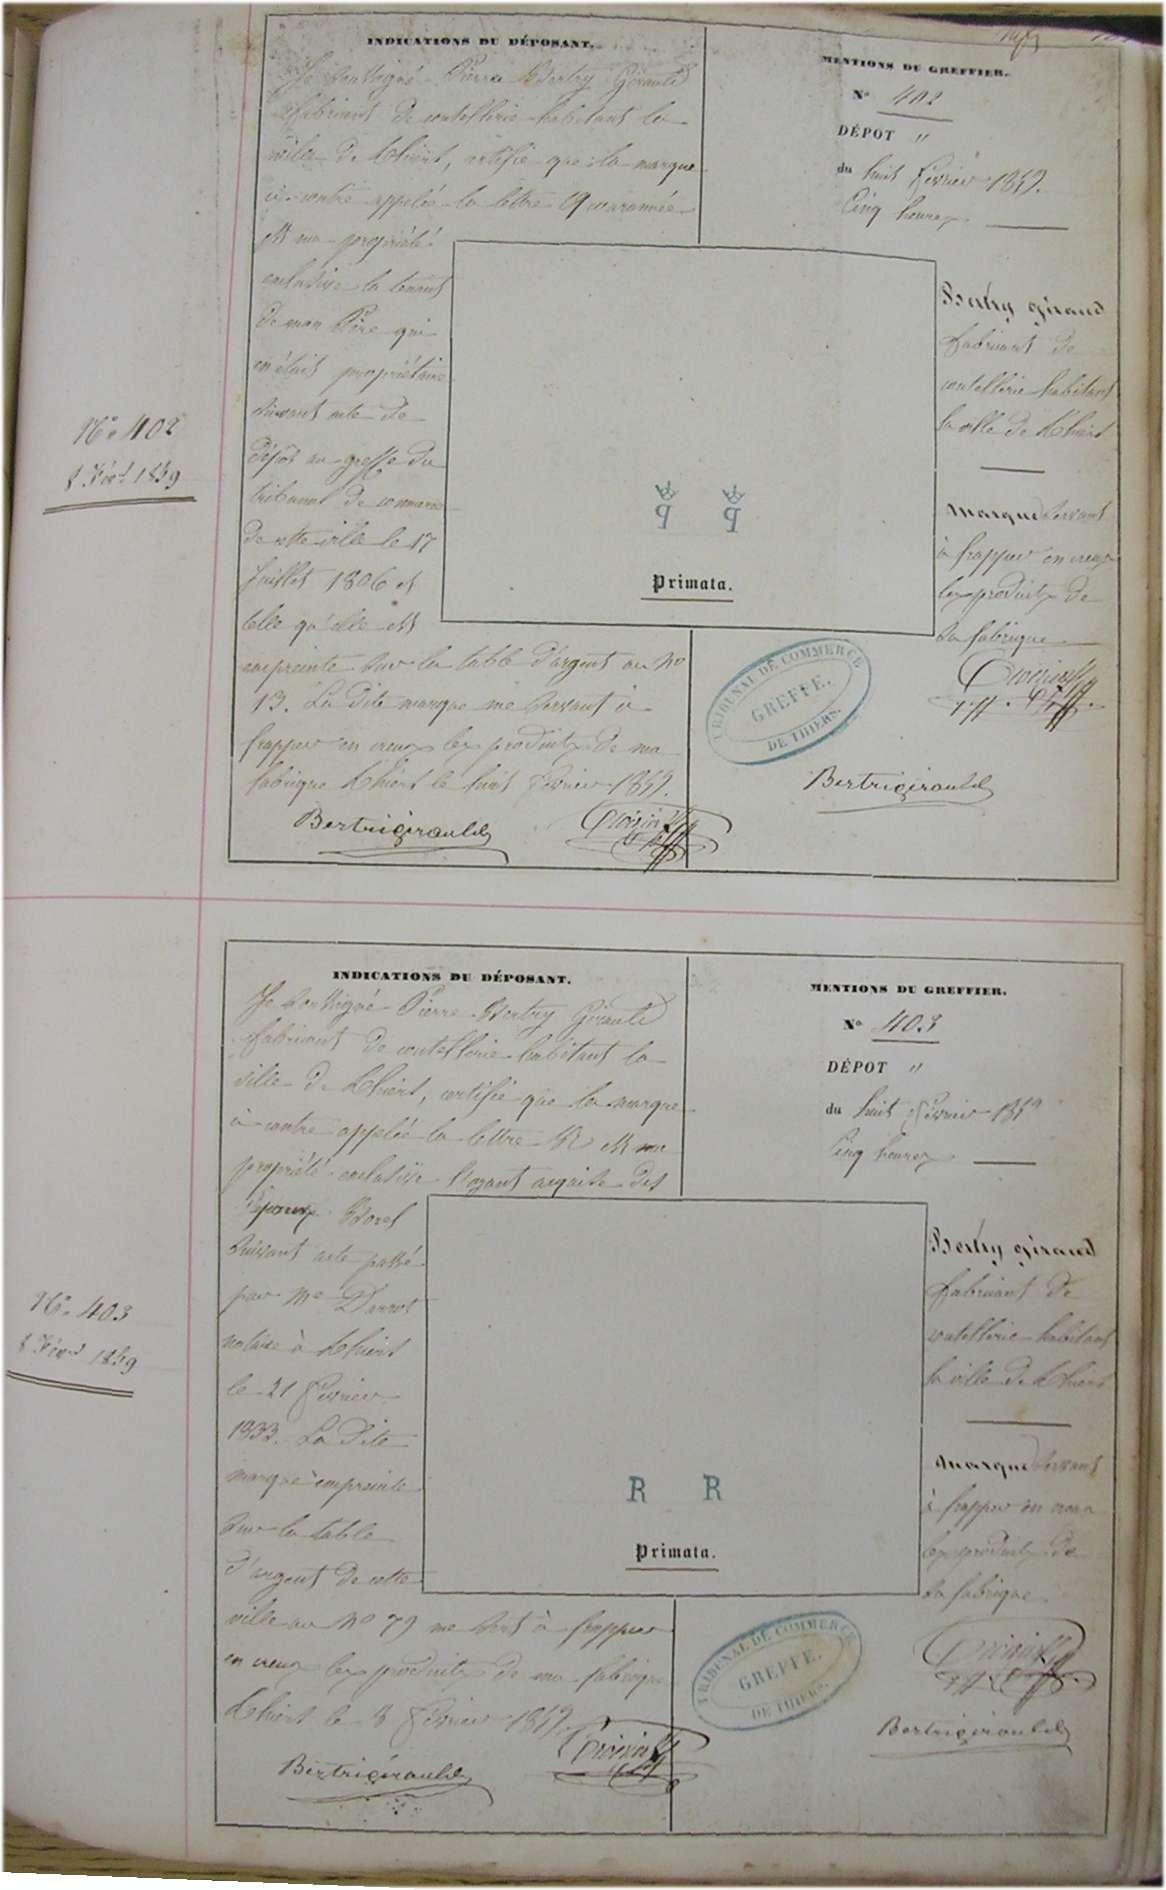 INDICATIONS DU DÉPOSANT.
Je soussigné Pierre Bertry Girauld
fabricant de coutellerie habitant la
ville de Thiers, certifie que la marque
ci-contre appelée la lettre 9 couronnée
est ma propriété
exclusive la tenant
de mon Père qui
en était propriétaire
suivant acte de
dépôt au greffe du
tribunal de commerce
de cette ville le 17
Juillet 1806 et
telle qu'elle est
empreinte sur la table d'argent au No
13. La dite marque me servant à
frapper en creux les produits de ma
fabrique Thiers le huit Février 1859.
Bertrigirauld
MENTIONS DU GREFFIER.
No 402
DÉPOT "
du huit Février 1859.
Cinq heures
Bertry giraud
fabricant de
coutellerie habitant
la ville de Thiers
Marque servant
à frapper en creux
les produits de
sa fabrique
Bertrigirauld
No 402
8 Févr 1859
q q
Primata.
TRIBUNAL DE COMMERCE
GREFFE.
DE THIERS.
INDICATIONS DU DÉPOSANT.
Je soussigné Pierre Bertry Girauld
fabricant de coutellerie habitant la
ville de Thiers, certifie que la marque
ci-contre appelée la lettre R est ma
propriété exclusive l'ayant acquise des
époux Borel
suivant acte passé
par Me Darrot
notaire à Thiers
le 21 Février
1833. La dite
marque empreinte
sur la table
d'argent de cette
ville au No 79 me sert à frapper
en creux les produits de ma fabrique
Thiers le 8 Février 1859.
Bertrigirauld
MENTIONS DU GREFFIER.
No 403
DÉPOT "
du huit Février 1859
Cinq heures
Bertry giraud
fabricant de
coutellerie habitant
la ville de Thiers
Marque servant
à frapper en creux
les produits de
sa fabrique
Bertrigirauld
No 403
8 Févr 1859
R R
Primata.
TRIBUNAL DE COMMERCE
GREFFE.
DE THIERS.